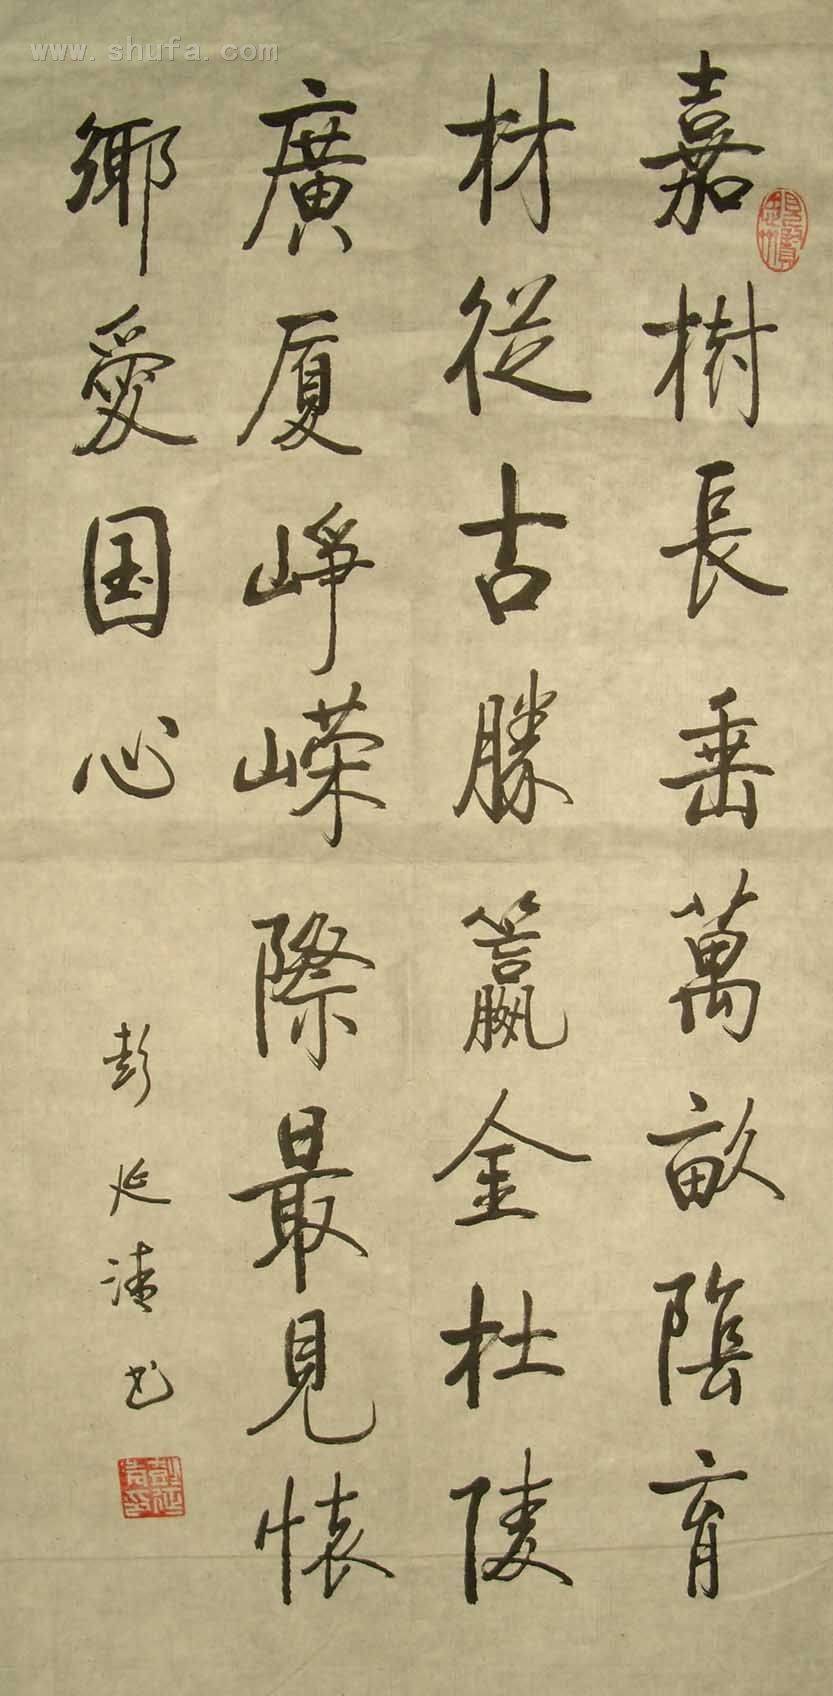 www.shufa.com
嘉樹長垂萬畝陰育
材從古勝籯金杜陵
廣厦崢嶸際最見懷
鄉愛国心
彭延清书